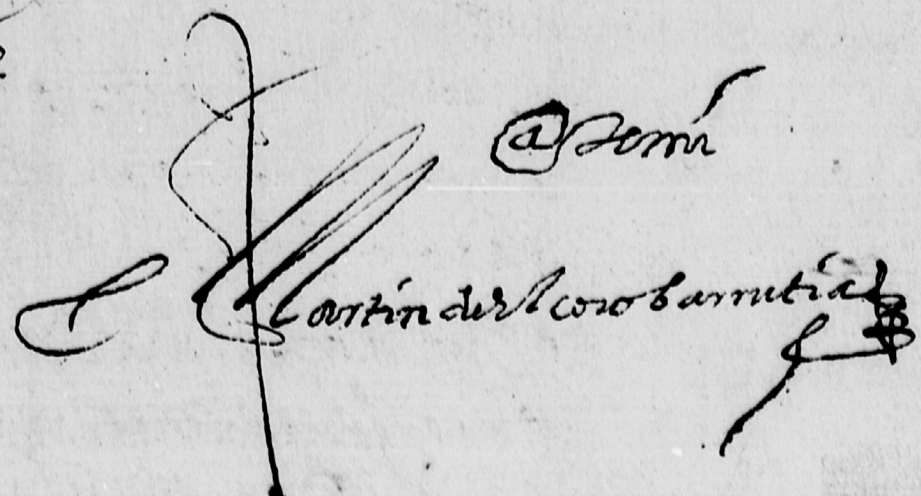 Ante mí
Martin de elcorobarrutia